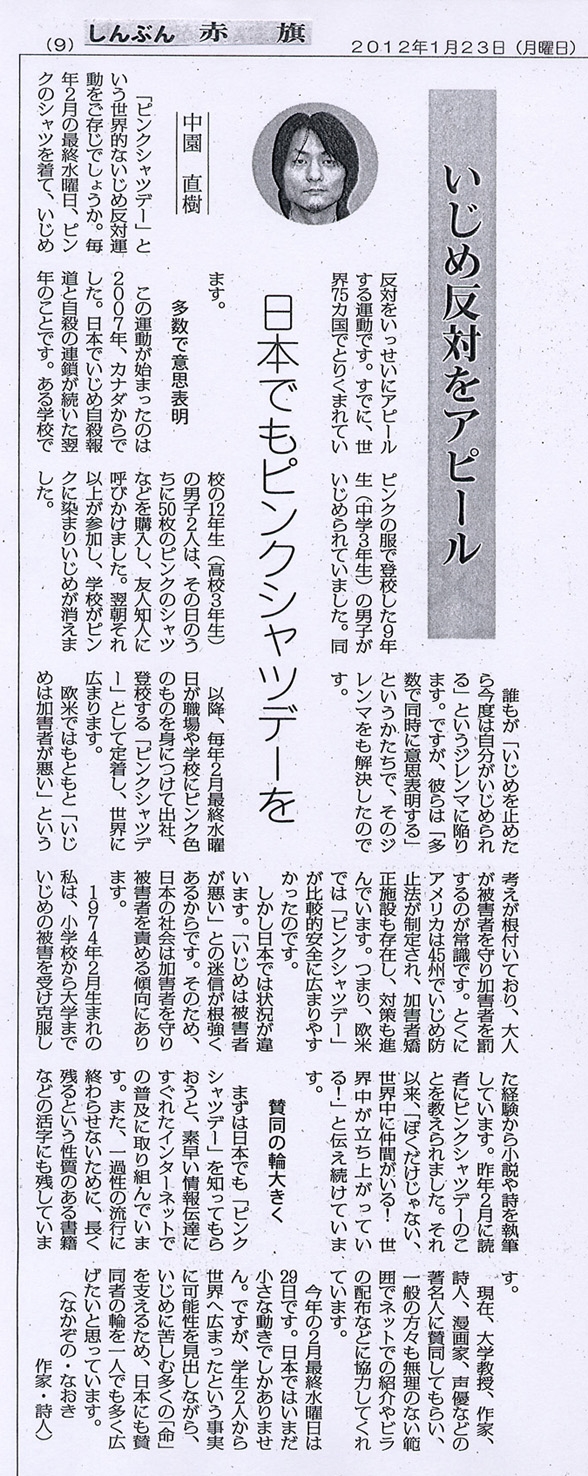 (9)
しんぶん 赤旗
2012年1月23日（月曜日）
いじめ反対をアピール
日本でもピンクシャツデーを
中園 直樹
「ピンクシャツデー」と
いう世界的ないじめ反対運
動をご存じでしょうか。毎
年2月の最終水曜日、ピン
クのシャツを着て、いじめ
反対をいっせいにアピール
する運動です。すでに、世
界75カ国でとりくまれてい
ます。
多数で意思表明
この運動が始まったのは
2007年、カナダからで
した。日本でいじめ自殺報
道と自殺の連鎖が続いた翌
年のことです。ある学校で
ピンクの服で登校した9年
生（中学3年生）の男子が
いじめられていました。同
校の12年生（高校3年生）
の男子2人は、その日のう
ちに50枚のピンクのシャツ
などを購入し、友人知人に
呼びかけました。翌朝それ
以上が参加し、学校がピン
クに染まりいじめが消えま
した。
誰もが「いじめを止めた
ら今度は自分がいじめられ
る」というジレンマに陥り
ます。ですが、彼らは「多
数で同時に意思表明する」
というかたちで、そのジ
レンマをも解決したので
す。
以降、毎年2月最終水曜
日が職場や学校にピンク色
のものを身につけて出社、
登校する「ピンクシャツデ
ー」として定着し、世界に
広まります。
欧米ではもともと「いじ
めは加害者が悪い」という
考えが根付いており、大人
が被害者を守り加害者を罰
するのが常識です。とくに
アメリカは45州でいじめ防
止法が制定され、加害者矯
正施設も存在し、対策も進
んでいます。つまり、欧米
では「ピンクシャツデー」
が比較的安全に広まりやす
かったのです。
しかし日本では状況が違
います。「いじめは被害者
が悪い」との迷信が根強く
あるからです。そのため、
日本の社会は加害者を守り
被害者を責める傾向にあり
ます。
1974年2月生まれの
私は、小学校から大学まで
いじめの被害を受け克服し
た経験から小説や詩を執筆
しています。昨年2月に読
者にピンクシャツデーのこ
とを教えられました。それ
以来、「ぼくだけじゃない、
世界中に仲間がいる！ 世
界中が立ち上がってい
る！」と伝え続けていま
す。
賛同の輪大きく
まずは日本でも「ピンク
シャツデー」を知ってもら
おうと、素早い情報伝達に
すぐれたインターネットで
の普及に取り組んでいま
す。また、一過性の流行に
終わらせないために、長く
残るという性質のある書籍
などの活字にも残していま
す。
現在、大学教授、作家、
詩人、漫画家、声優などの
著名人に賛同してもらい、
一般の方々も無理のない範
囲でネットでの紹介やビラ
の配布などに協力してくれ
ています。
今年の2月最終水曜日は
29日です。日本ではいまだ
小さな動きでしかありませ
ん。ですが、学生2人から
世界へ広まったという事実
に可能性を見出しながら、
いじめに苦しむ多くの「命」
を支えるため、日本にも賛
同者の輪を一人でも多く広
げたいと思っています。
（なかぞの・なおき
作家・詩人）